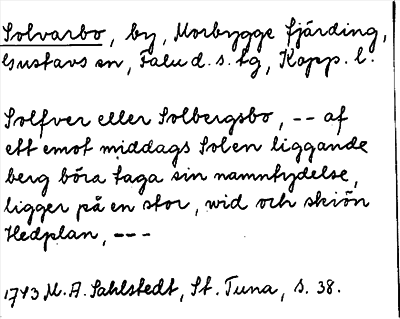 Solvarbo, by, Morbygge fjärding,
Gustavs sn, Falu d. s. tg, Kopp. l.
Solfver eller Solbergsbo, -- af
ett emot middags Solen liggande
berg böra taga sin namntydelse,
ligger på en stor, wid och skiön
Hedplan, ---
1743 M. A. Sahlstedt, St. Tuna, s. 38.